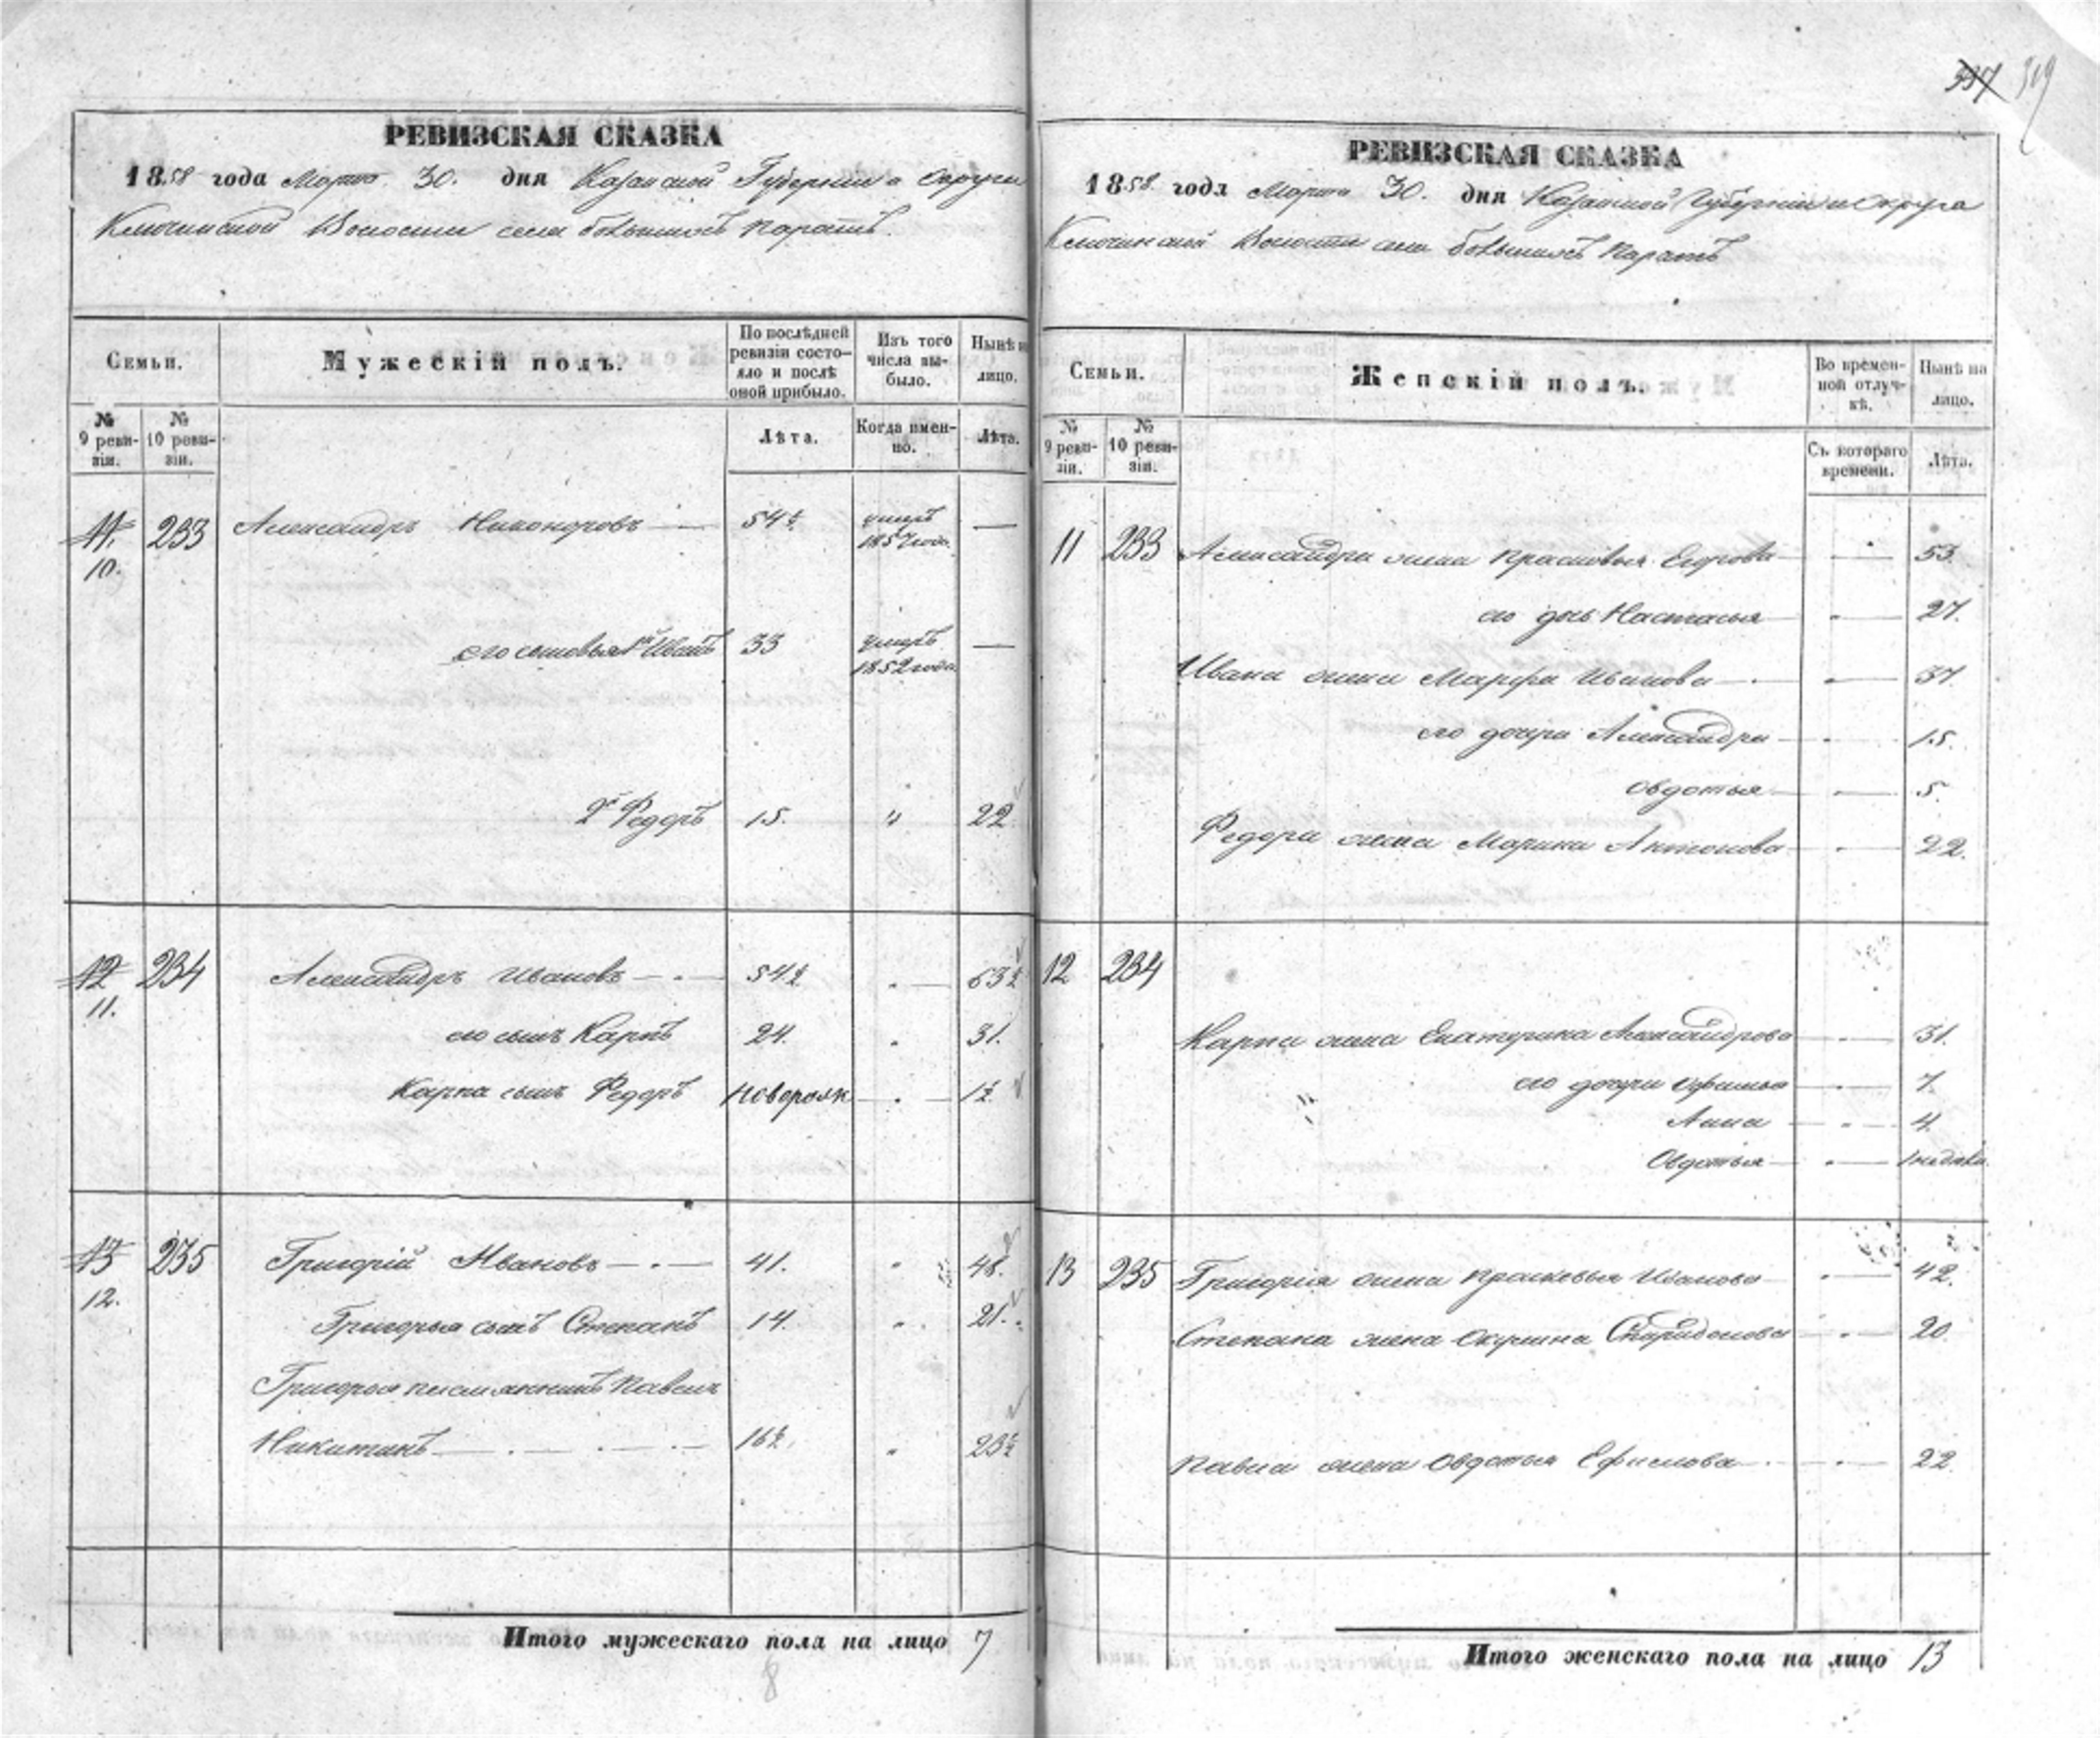 337 319
РЕВИЗСКАЯ СКАЗКА
1858 года Марта 30. дня Казанской Губернии и округи
Ключинской Волости села большихъ Паратъ.
Семьи.
Мужескій полъ.
По послѣдней ревизіи состо-
яло и послѣ оной прибыло.
Изъ того числа вы-
было.
Нынѣ на лицо.
№ 9 реви-
зіи.
№ 10 реви-
зіи.
Лѣта.
Когда имен-
но.
Лѣта.
11. 10. 233 Александръ Никоноровъ 54½ умеръ 1857 года —
его сыновья 1й Иванъ 33 умеръ 1852 года —
2й Федоръ 15. " 22
12 11. 234 Александръ Ивановъ 54½ " 63½
его сынъ Карпъ 24. " 31.
Карпа сынъ Федоръ новорож " 1½
13 12. 235 Григорій Ивановъ 41. " 48.
Григорья сынъ Степанъ 14. " 21.
Григорья племянникъ Павелъ
Никитинъ 16½ " 23½
Итого мужескаго пола на лицо 7
8
РЕВИЗСКАЯ СКАЗКА
1858 года Марта 30. дня Казанской Губерніи и округа
Ключинской Волости села большихъ Паратъ
Семьи.
Женскій полъ.
Во времен-
ной отлуч-
кѣ.
Нынѣ на лицо.
№ 9 реви-
зіи.
№ 10 реви-
зіи.
Съ котораго времени.
Лѣта.
11 233 Александра жена Прасковья Егорова " 53
его дочь Настасья " 27.
Ивана жена Марфа Иванова " 37.
его дочери Александра " 15.
Овдотья " 5.
Федора жена Марина Антонова " 22.
12 234
Карпа жена Екатерина Александрова " 31.
его дочери Офимья " 7.
Анна " 4
Овдотья " 1 недѣли.
13 235 Григорія жена Прасковья Иванова " 42.
Степана жена Окулина Спиридонова " 20.
Павла жена Овдотья Ефимова " 22.
Итого женскаго пола на лицо 13